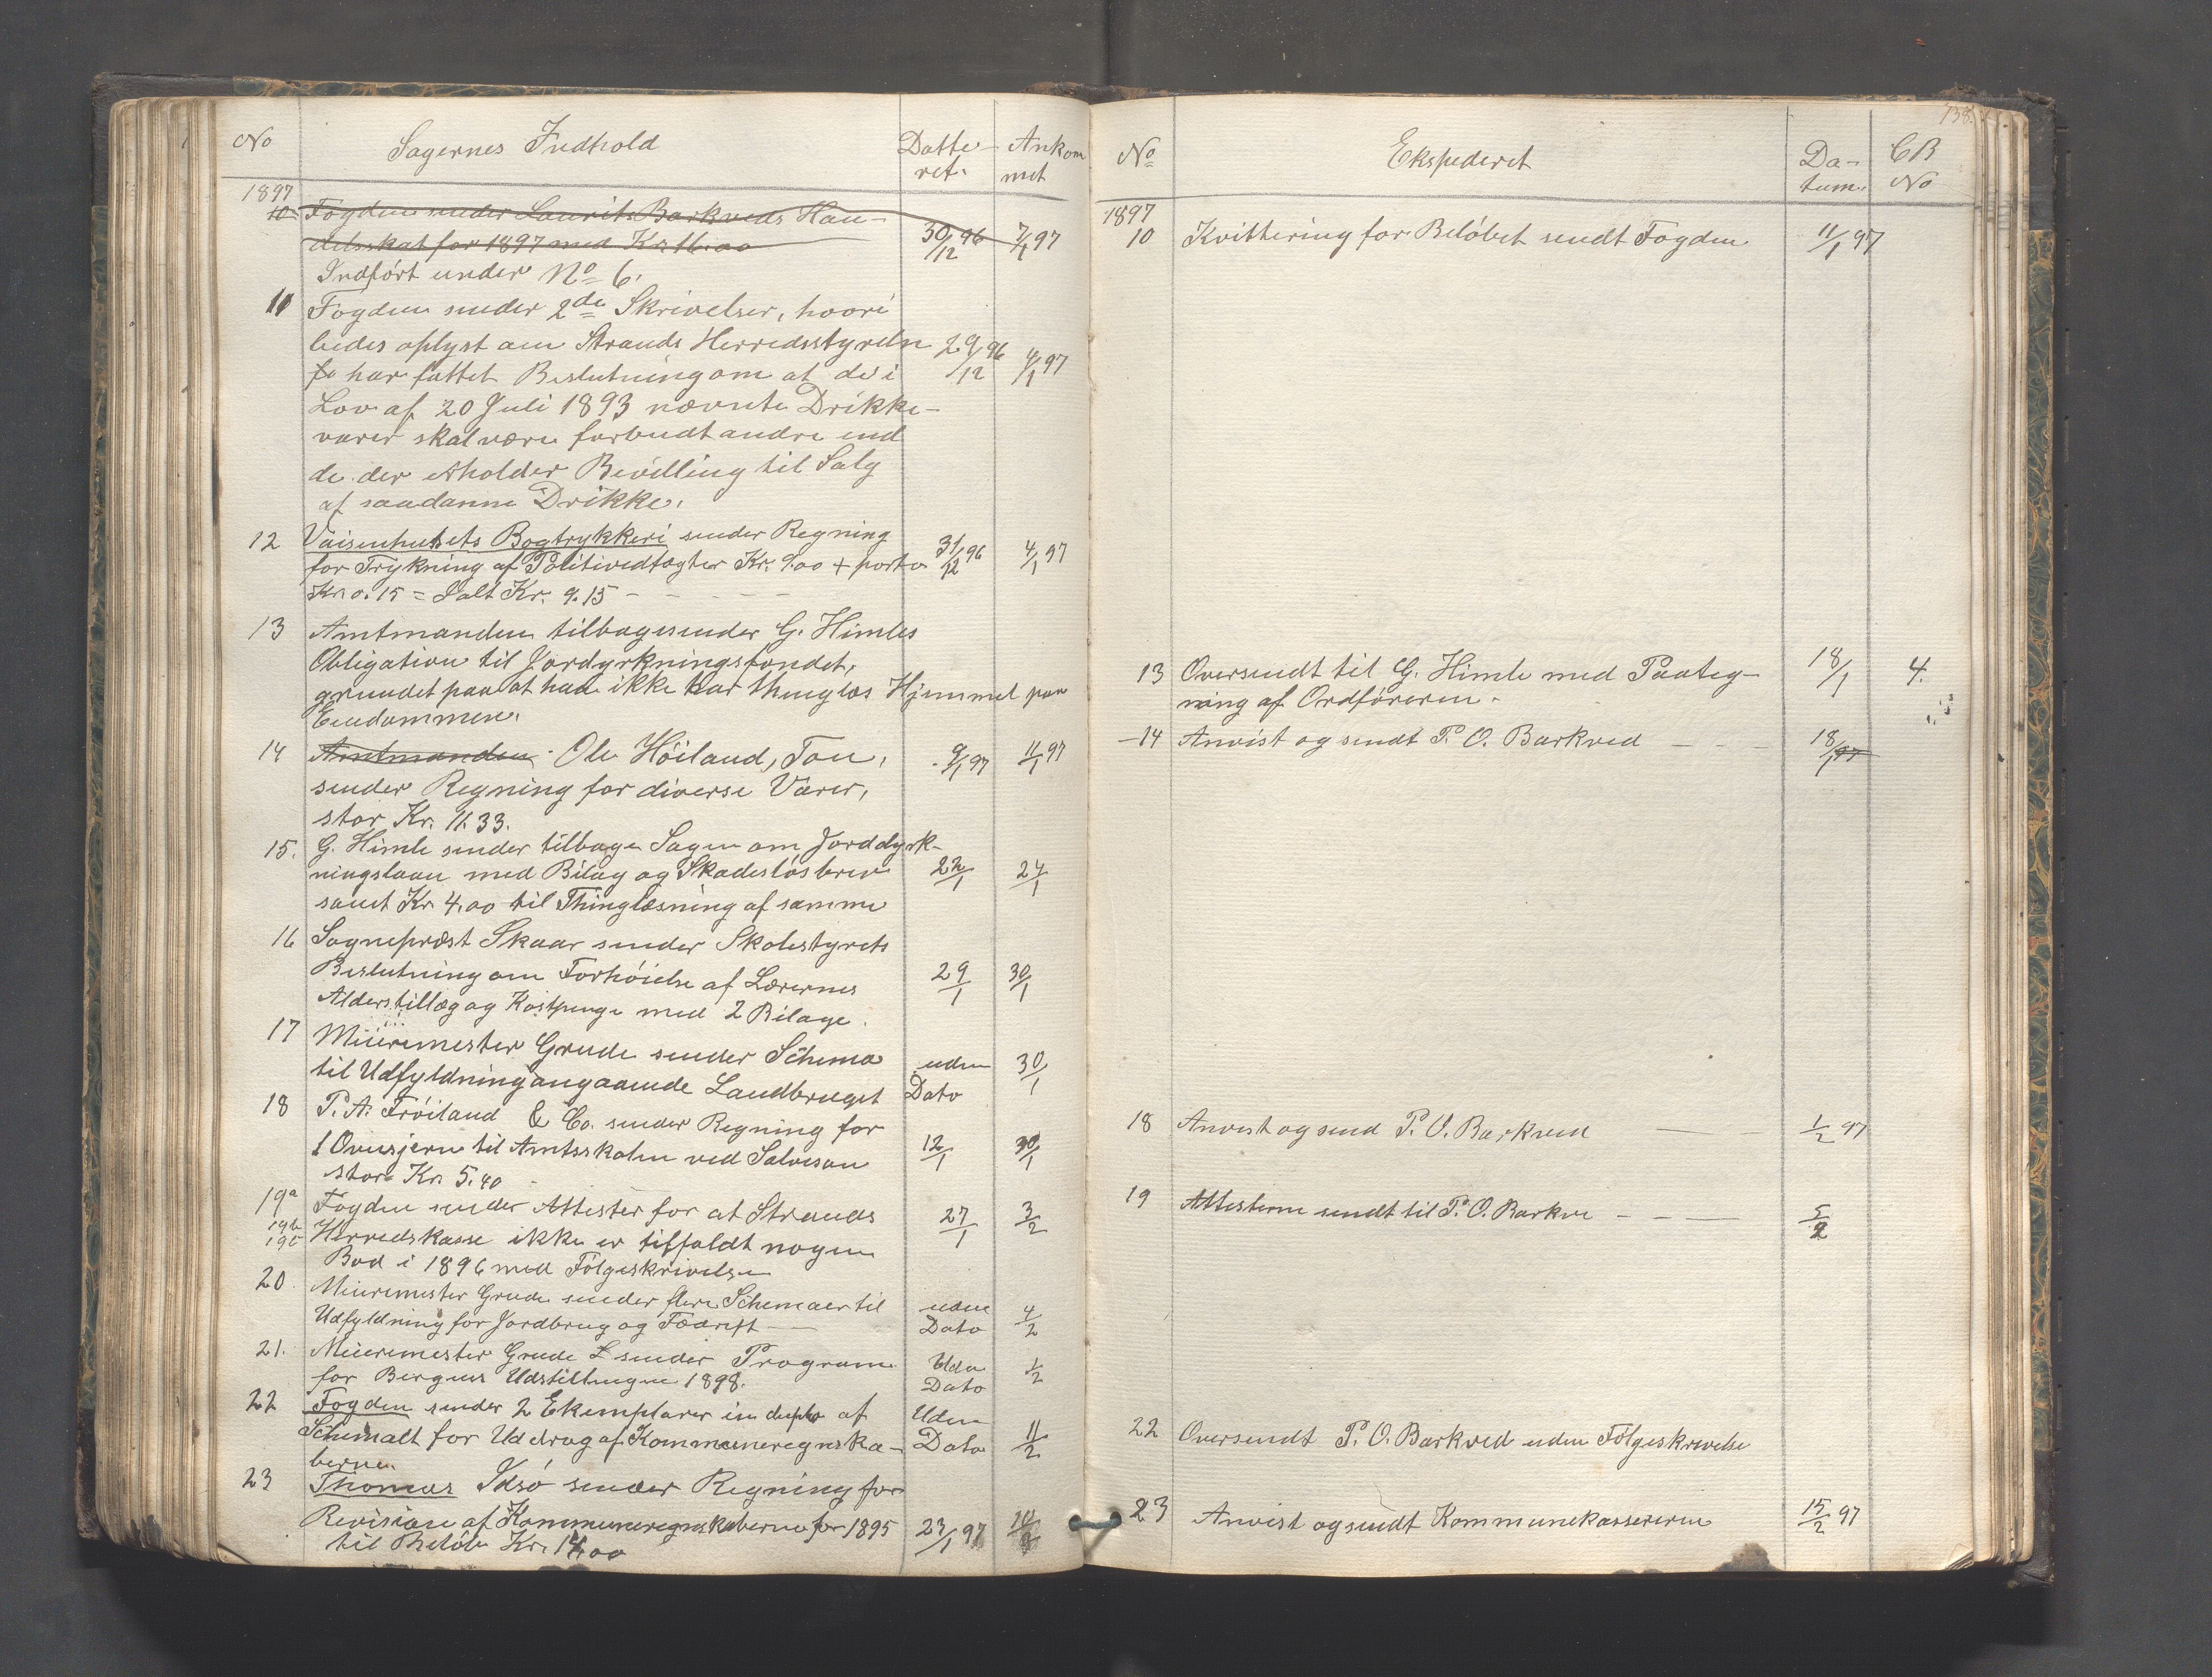 No Sagernes Indhold Datte- Ankom
ret. met
1897
10 Fogden sender Laurits Barkveds Han-
delsskat for 1897 med Kr. 16.00 30/12 96 7/1 97
Indført under No 6.
11 Fogden sender 2de Skrivelser, hvori
bedes oplyst om Strands Herredsstyrelse 29/12 96 4/1 97
har fattet Beslutning om at de i
Lov af 20 Juli 1893 nævnte Drikke-
varer skal være forbudt andre end
de der erholder Bevilling til Salg
af saadanne Drikke.
12 Vaisenhusets Bogtrykkeri sender Regning
for Trykning af Politivedtægter Kr. 9.00 + porto 31/12 96 4/1 97
Kr. 0.15 = Ialt Kr. 9.15 - - - - -
13 Amtmanden tilbagesender G. Himles
Obligation til Jordyrkningsfondet,
grundet paa at han ikke har thinglæs Hjemmel paa
Eiendommen.
14 Amtmanden Ole Höiland, Tou, 9/1 97 11/1 97
sender Regning for diverse Varer,
stor Kr. 11.33.
15. G. Himle sender tilbage Sagen om Jorddyrk-
ningslaan med Bilag og Skadesløsbrev 22/1 24/1
samt Kr. 4.00 til Thinglæsning af samme
16 Sognepræst Skaar sender Skolestyrets
Beslutning om Forhöielse af Lærernes 29/1 30/1
Alderstillæg og Kostpenge med 2 Bilage.
17 Meieremester Grude sender Schema uden 30/1
til Udfyldning angaaende Landbruget Dato
18 P. A. Fröiland & Co. sender Regning for
1 Ovnsjern til Amtsskolen ved Salvesen 12/1 30/1
stor Kr. 5.40
19a Fogden sender Attester for at Strands 27/1 3/2
19b Herredskasse ikke er tilfaldt nogen
19c
Bod i 1896 med Fölgeskrivelse
20. Meieremester Grude sender flere Schemaer til uden 4/2
Udfyldning for Jordbrug og Fædrift - Dato
21. Meieremester Grude sender Program Uden 1/2
for Bergens Udstillingen 1898. Dato
22 Fogden sender 2 Eksemplarer in duplo af Uden
Schemalt for Uddrag af Kommuneregnska- Dato 11/2
berne.
23 Thomas Idsö sender Regning for
Revision af Kommuneregnskaberne for 1895 23/1 97
til Belöb Kr. 14.00
138.
No Ekspederet Da- CB
tum. No
1897
10 Kvittering for Belöbet sendt Fogden 11/1 97
13 Oversendt til G. Himle med Paateg- 18/1 4.
ning af Ordföreren.
14 Anvist og sendt P. O. Barkved - - 18/1 97
18 Anvist og send P. O. Barkved 1/2 97
19 Attesterne sendt til P. O. Barkve - - 5/2
22 Oversendt P. O. Barkved uden Fölgeskrivelse
23 Anvist og sendt Kommunekassereren 15/2 97